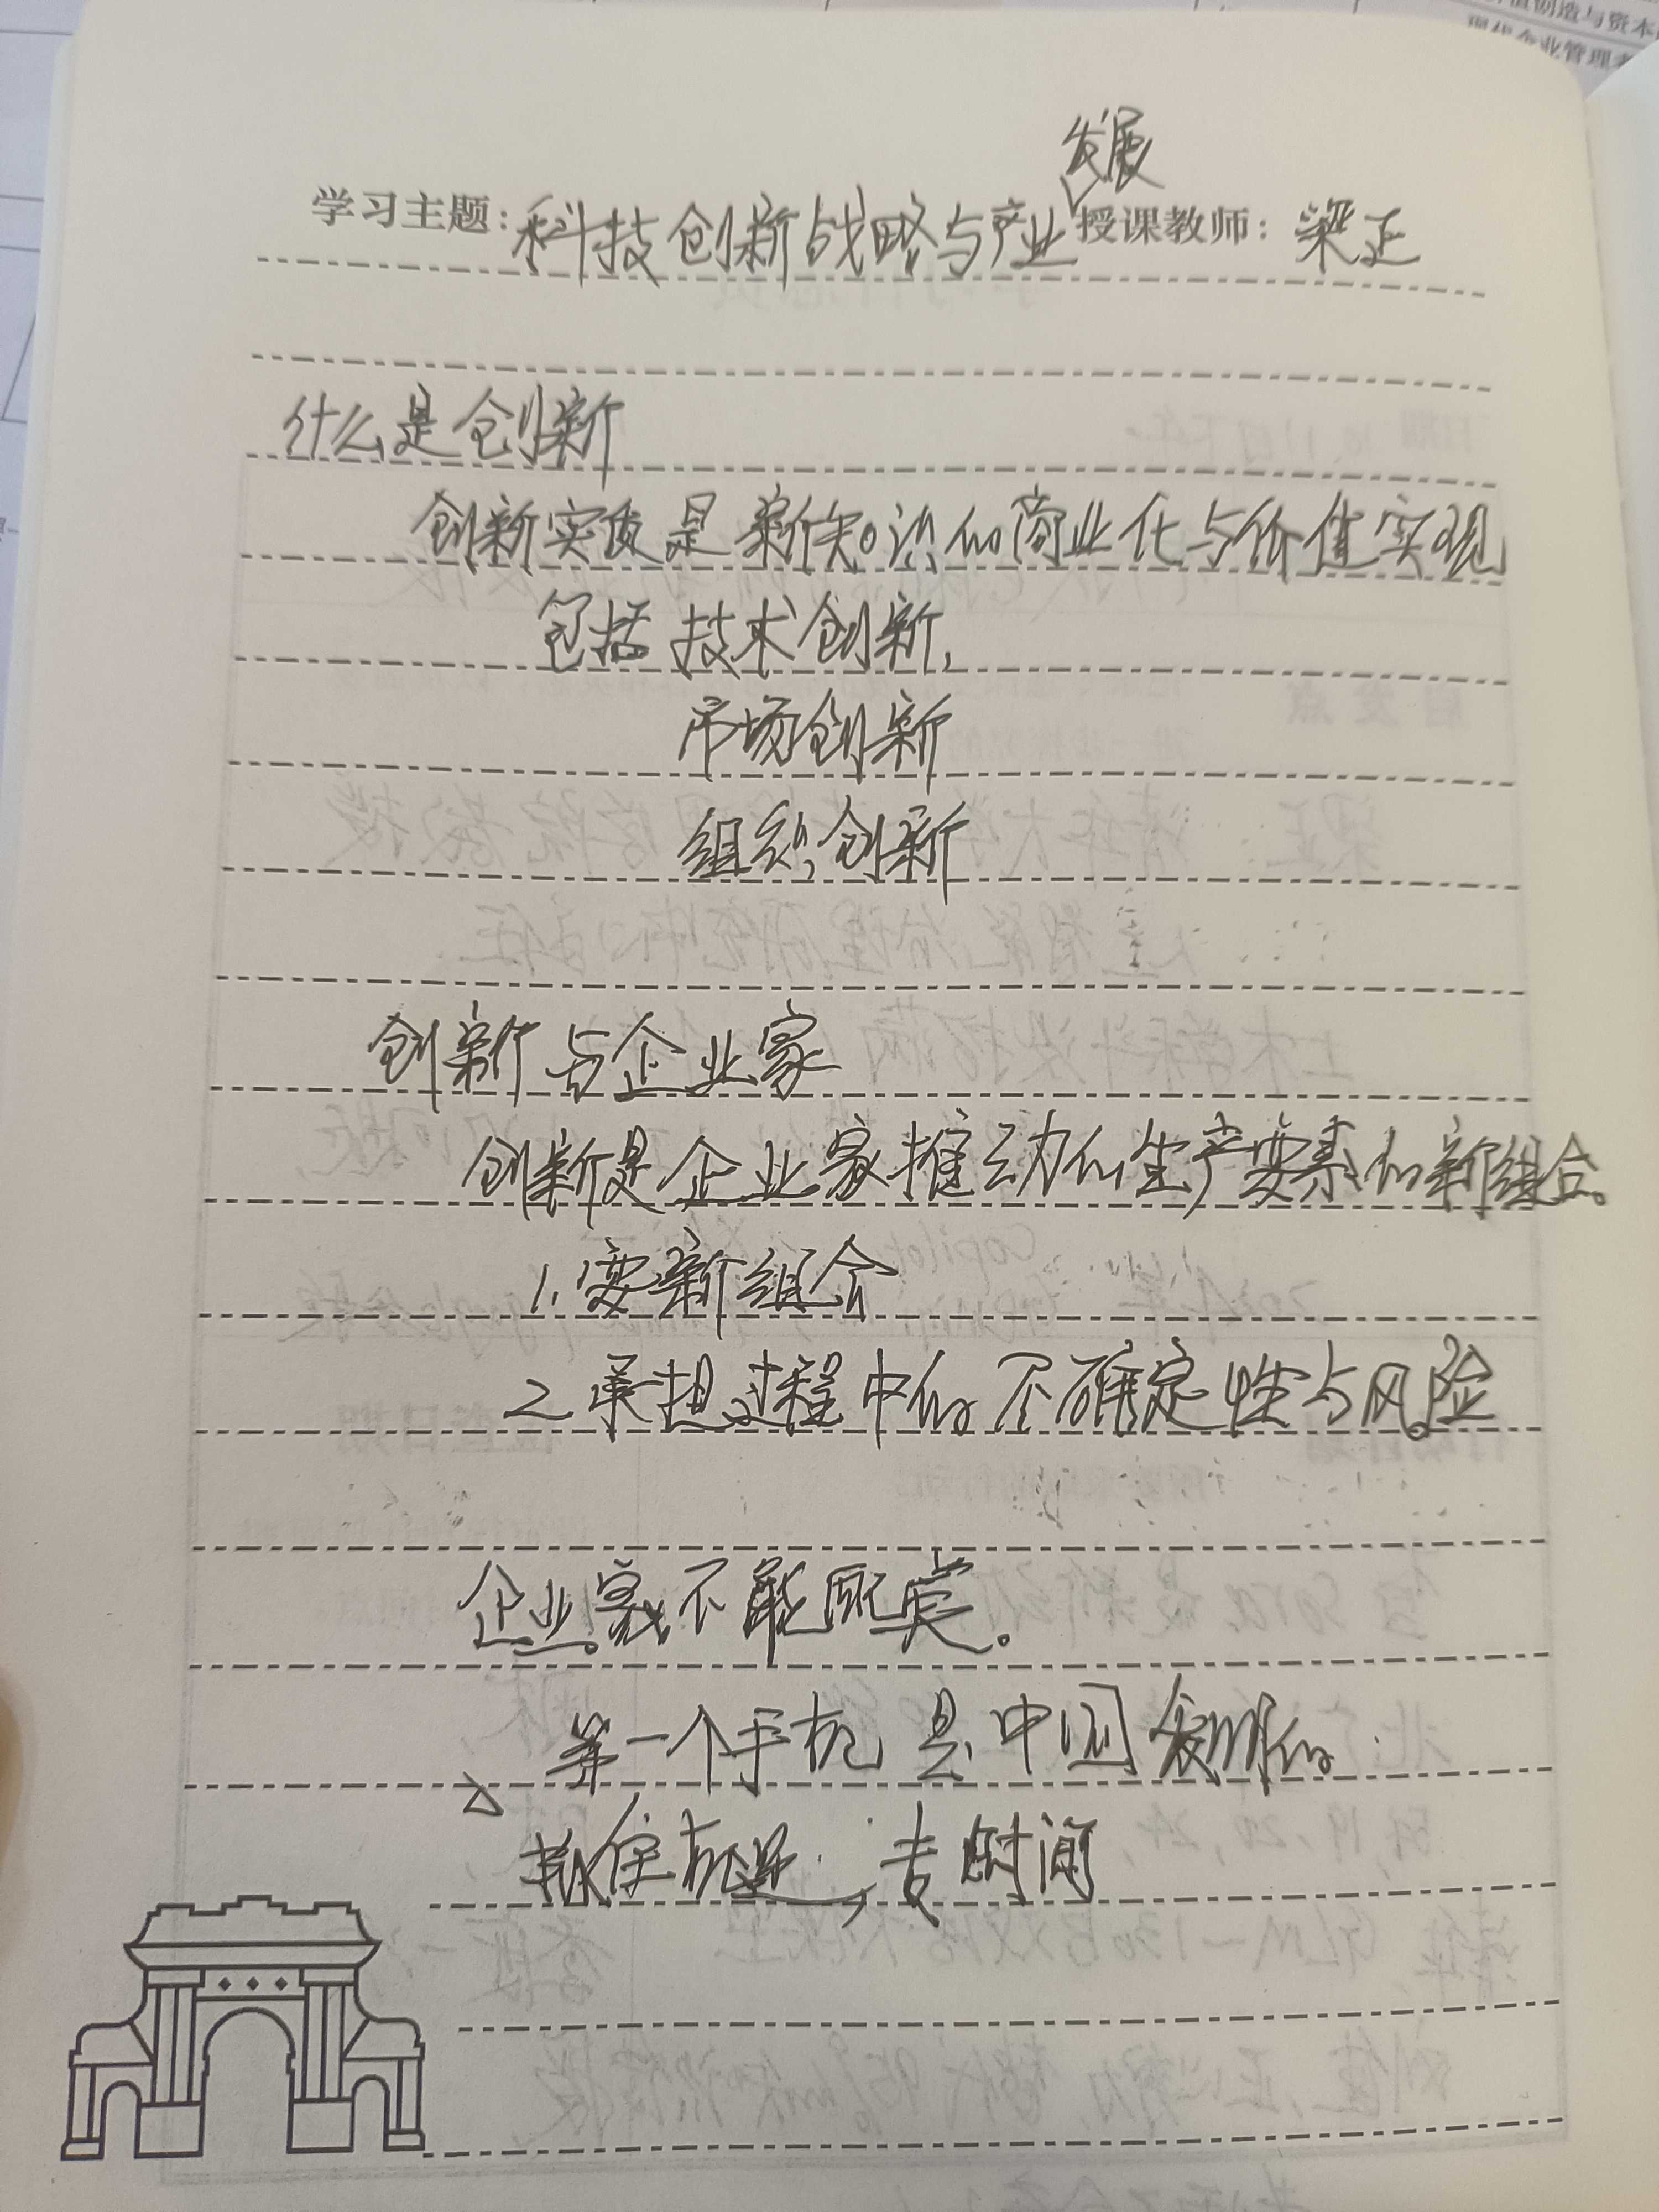 值创造与资本
现代企业管理
发展
学习主题：科技创新战略与产业 授课教师：梁正
什么是创新
创新实质是新知识的商业化与价值实现
包括 技术创新，
市场创新
组织创新
创新与企业家
创新是企业家推动的生产要素的新组合。
1. 要新组合
2. 承担过程中的不确定性与风险
企业家不能厌
第一个手机是中国发明的.
抓住机遇， 时间